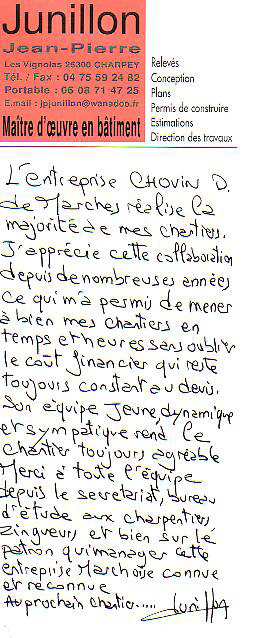 Junillon
Jean-Pierre
Les Vignolas 26300 CHARPEY
Tél. / Fax : 04 75 59 24 82
Portable : 06 08 71 47 25
E.mail : jpjunillon@wanadoo.fr
Maître d'œuvre en bâtiment
Relevés
Conception
Plans
Permis de construire
Estimations
Direction des travaux
L'entreprise CHOVIN D.
de Marches réalise la
majorité de mes chantiers.
J'apprécie cette collaboration
depuis de nombreuses années
ce qui m'a permis de mener
à bien mes chantiers en
temps et heures sans oublier
le coût financier qui reste
toujours constant au devis.
Son équipe jeune, dynamique
et sympatique rend le
chantier toujours agréable
Merci à toute l'équipe
depuis le secrétariat, bureau
d'étude aux charpentiers
zingueurs et bien sur le
patron qui manager cette
entreprise Marchoise connue
et reconnue
Au prochain chantier.....
Junillon